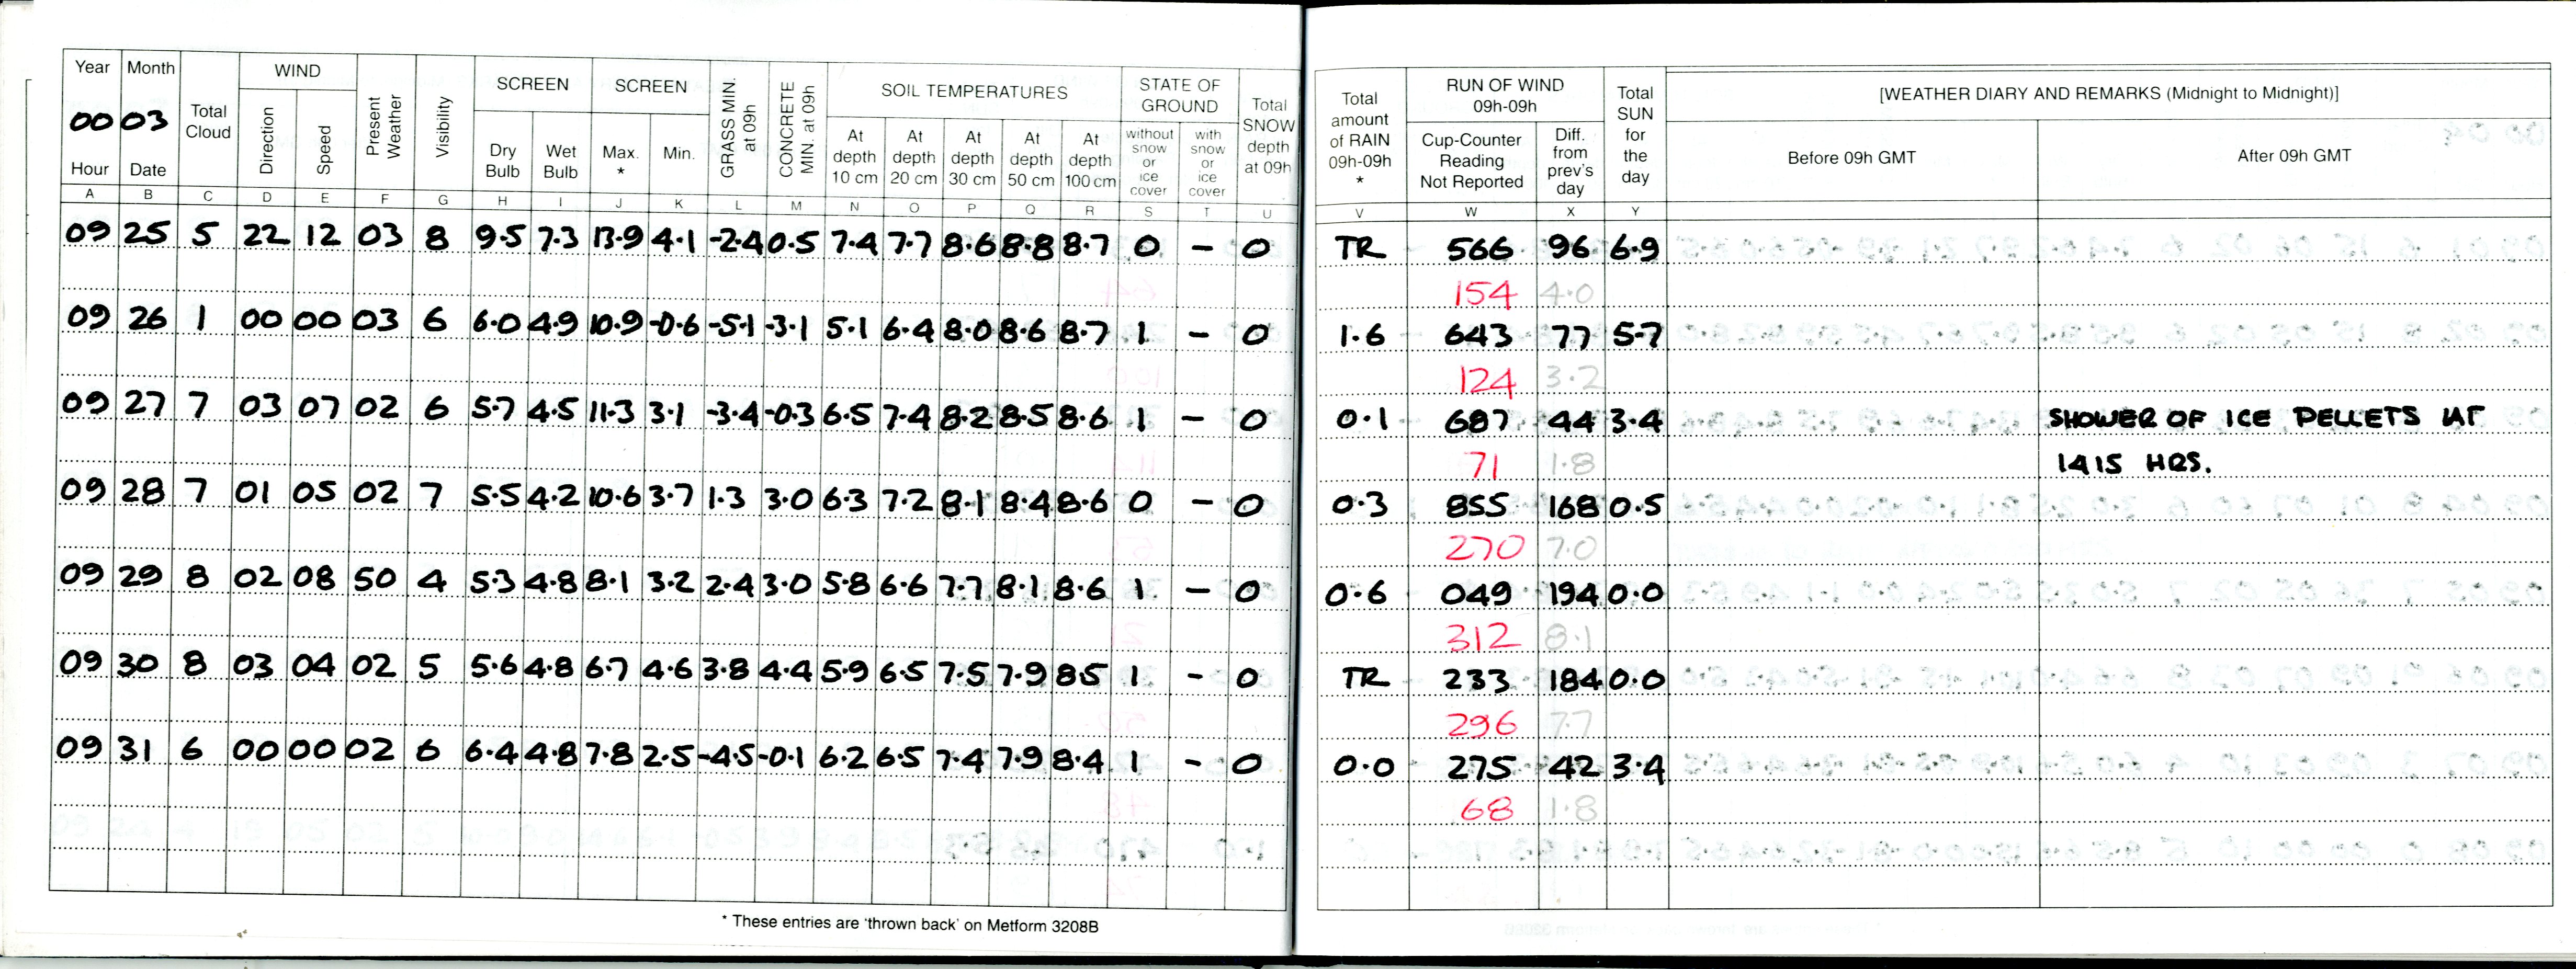 Year Month Total Cloud WIND Direction Speed Present Weather Visibility SCREEN Dry Bulb Wet Bulb SCREEN Max. * Min. GRASS MIN. at 09h CONCRETE MIN. at 09h SOIL TEMPERATURES At depth 10 cm At depth 20 cm At depth 30 cm At depth 50 cm At depth 100 cm STATE OF GROUND without snow or ice cover with snow or ice cover Total SNOW depth at 09h
00 03
Hour Date
A B C D E F G H I J K L M N O P Q R S T U
09 25 5 22 12 03 8 9.5 7.3 13.9 4.1 -2.4 0.5 7.4 7.7 8.6 8.8 8.7 0 - 0
09 26 1 00 00 03 6 6.0 4.9 10.9 -0.6 -5.1 -3.1 5.1 6.4 8.0 8.6 8.7 1 - 0
09 27 7 03 07 02 6 5.7 4.5 11.3 3.1 -3.4 -0.3 6.5 7.4 8.2 8.5 8.6 1 - 0
09 28 7 01 05 02 7 5.5 4.2 10.6 3.7 1.3 3.0 6.3 7.2 8.1 8.4 8.6 0 - 0
09 29 8 02 08 50 4 5.3 4.8 8.1 3.2 2.4 3.0 5.8 6.6 7.7 8.1 8.6 1 - 0
09 30 8 03 04 02 5 5.6 4.8 6.7 4.6 3.8 4.4 5.9 6.5 7.5 7.9 8.5 1 - 0
09 31 6 00 00 02 6 6.4 4.8 7.8 2.5 -4.5 -0.1 6.2 6.5 7.4 7.9 8.4 1 - 0
* These entries are 'thrown back' on Metform 3208B
Total amount of RAIN 09h-09h * RUN OF WIND 09h-09h Cup-Counter Reading Not Reported Diff. from prev's day Total SUN for the day [WEATHER DIARY AND REMARKS (Midnight to Midnight)]
Before 09h GMT After 09h GMT
V W X Y
TR 566 96 6.9
154 4.0
1.6 643 77 5.7
124 3.2
0.1 687 44 3.4 SHOWER OF ICE PELLETS AT
71 1.8 1415 HRS.
0.3 855 168 0.5
270 7.0
0.6 049 194 0.0
312 8.1
TR 233 184 0.0
296 7.7
0.0 275 42 3.4
68 1.8